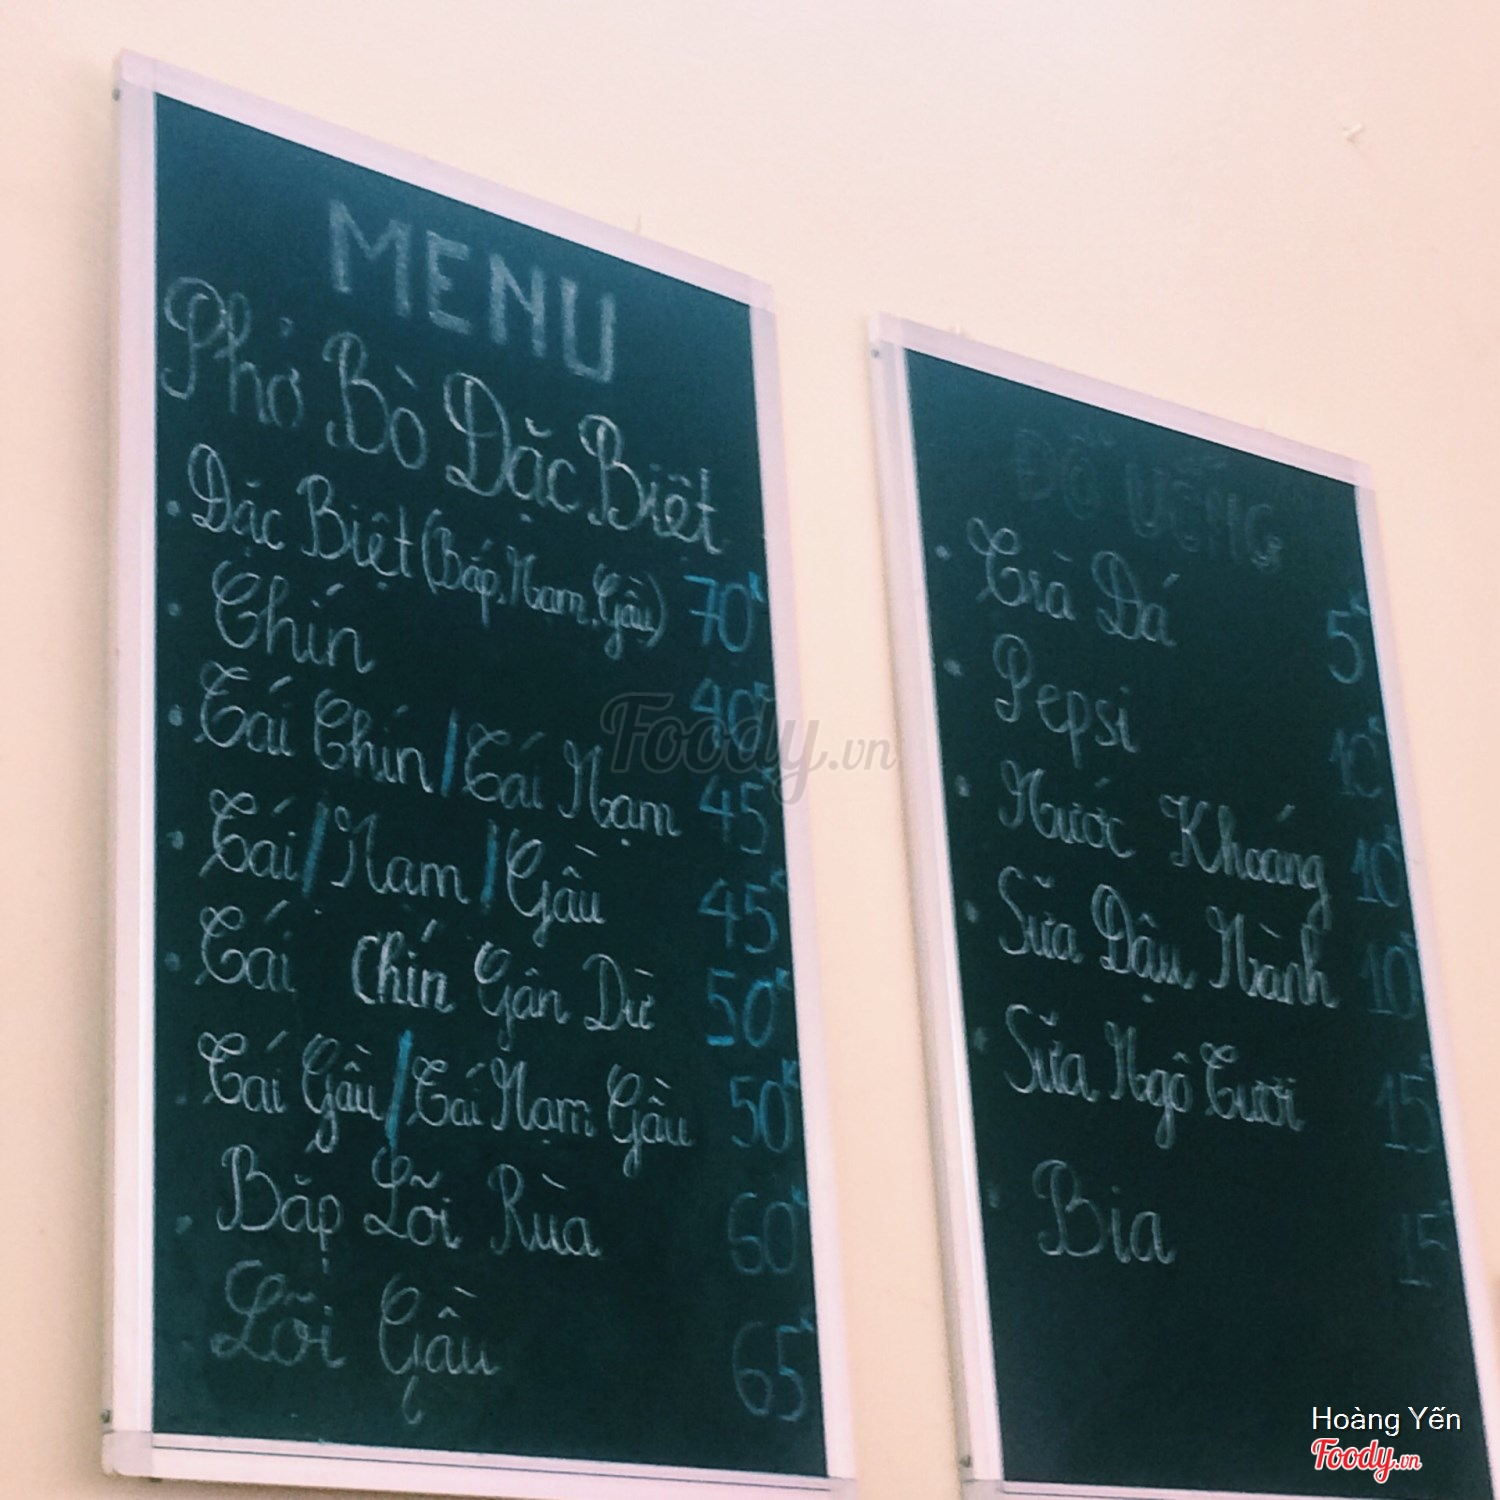 MENU
Phở Bò Đặc Biệt
• Đặc Biệt (Bắp, Nạm, Gầu) 70K
• Chín 40K
• Tái Chín / Tái Nạm 45K
• Tái / Nạm / Gầu 45K
• Tái Chín Gân Dừ 50K
• Tái Gầu / Tái Nạm Gầu 50K
• Bắp Lõi Rùa 60K
Lõi Gầu 65K
ĐỒ UỐNG
• Trà Đá 5K
• Pepsi 10K
• Nước Khoáng 10K
• Sữa Đậu Nành 10K
• Sữa Ngô Tươi 15K
Bia 15K
Foody.vn
Hoàng Yến
Foody.vn